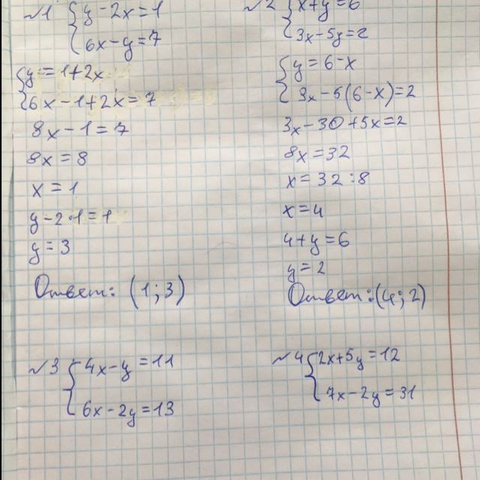 №1 {y-2x=1
{6x-y=7
{y=1+2x
{6x-1+2x=7
8x-1=7
8x=8
x=1
y-2·1=1
y=3
Ответ: (1;3)
№2 {x+y=6
{3x-5y=2
{y=6-x
{3x-5(6-x)=2
3x-30+5x=2
8x=32
x=32:8
x=4
4+y=6
y=2
Ответ:(4;2)
№3 {4x-y=11
{6x-2y=13
№4 {2x+5y=12
{7x-2y=31